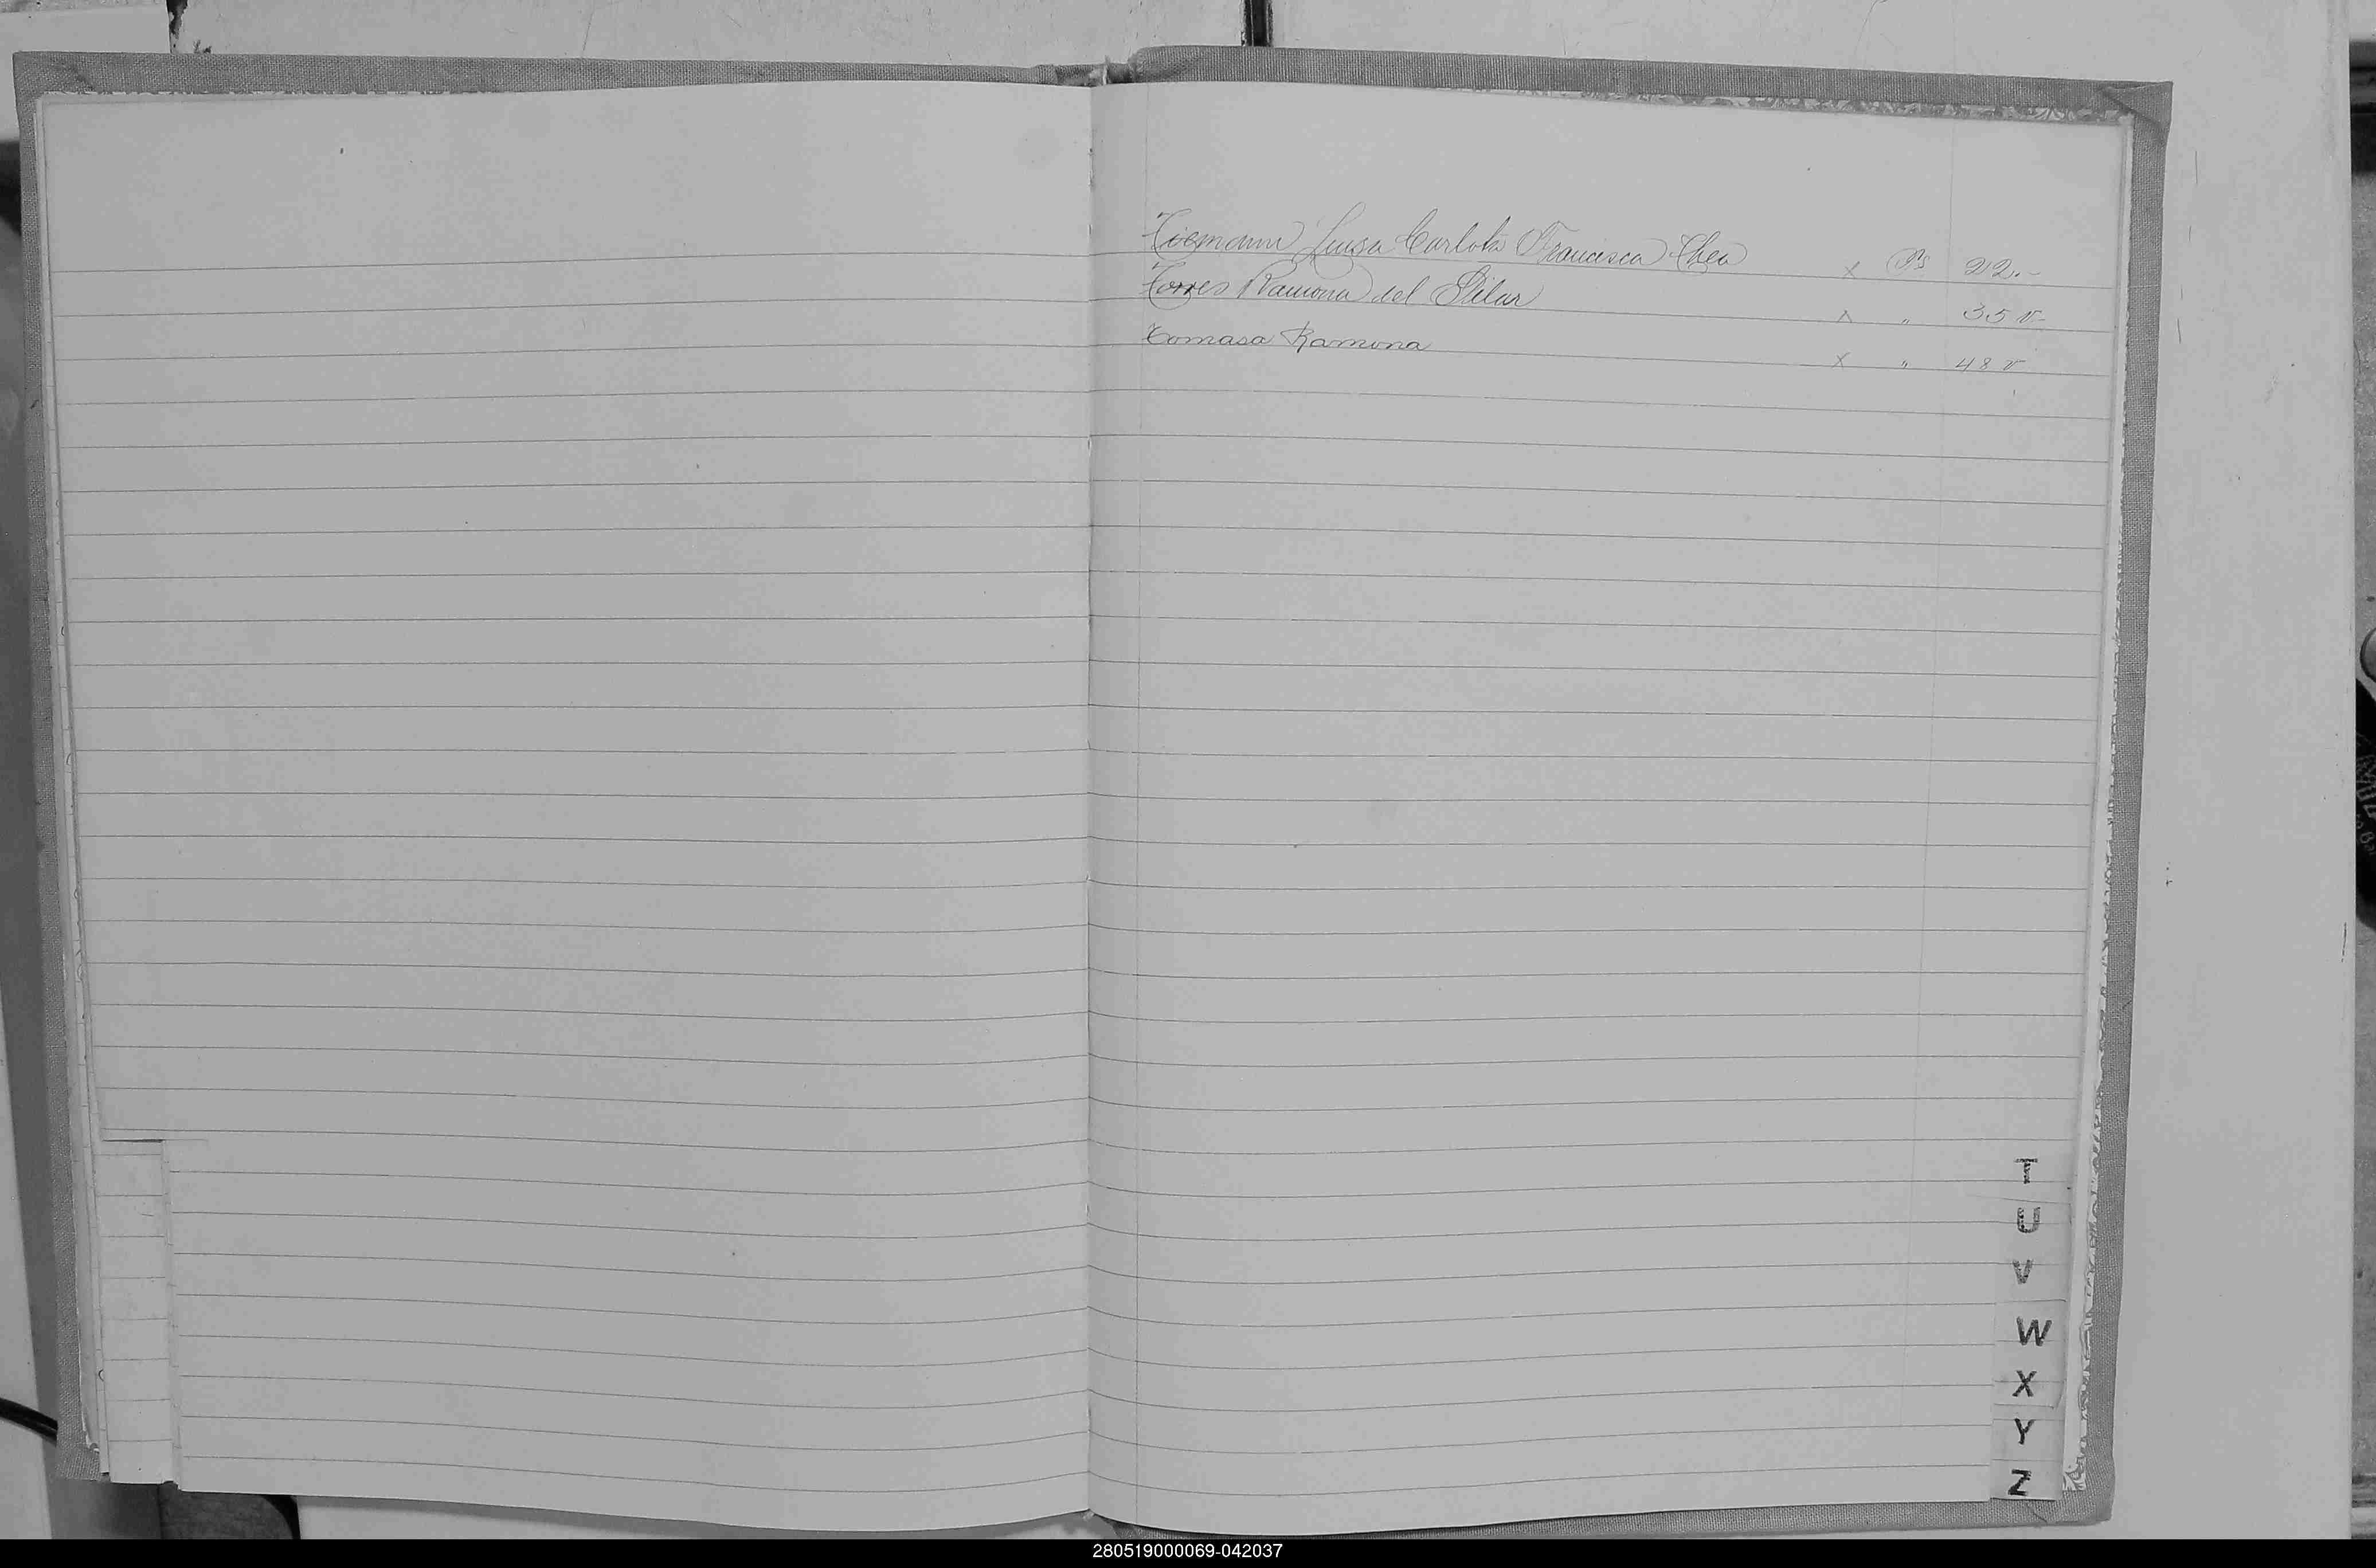 Tiemann Luisa Carlota Francisca Thea x Ps 22.-
Torres Ramona del Pilar x " 35 v-
Tomasa Ramona x " 48 v
T
U
V
W
X
Y
Z
280519000069-042037